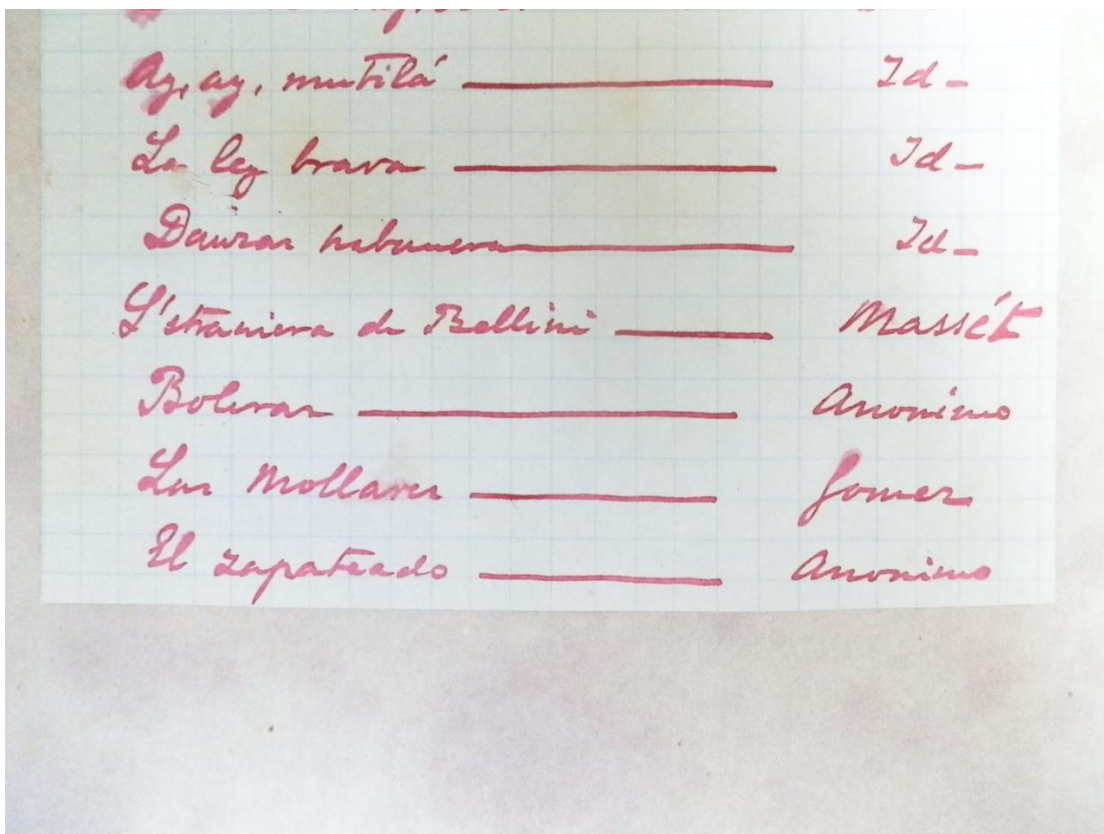 Ay, ay, mutilá Id-
La ley brava Id-
Danzas habanera Id-
L'straniera de Bellini Massét
Boleras Anonimo
Las Mollares Gomez
El zapateado Anonimo